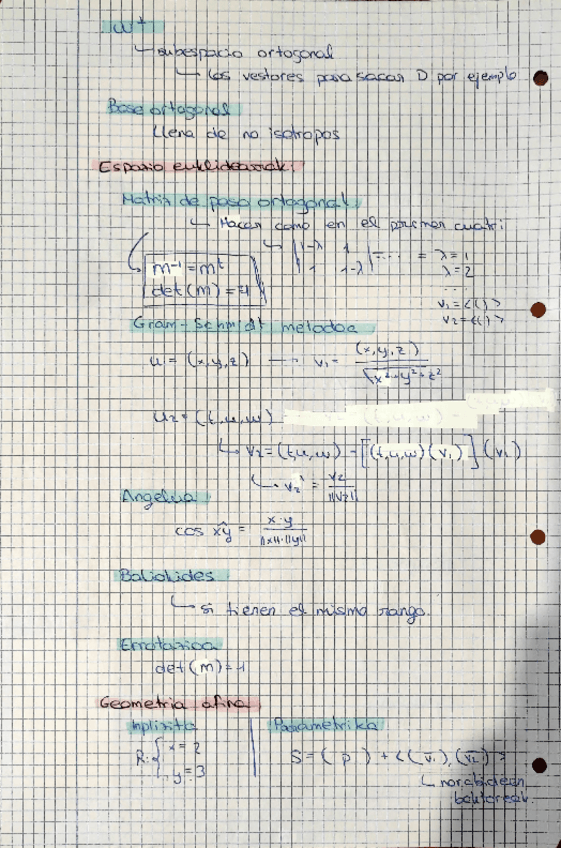 W⊥
↳ subespacio ortogonal
↳ los vestores para sacar D por ejemplo
Base ortogonal
Llena de no isotropos
Espazio euklidearrak:
Matriz de paso ortogonal:
↳ Hacer como en el primer cuatri
↳ |1-λ 1 ... 1 1-λ| = λ = 1
λ = 2
...
m⁻¹ = mᵗ
det(m) = 1
v₁ = <( )>
v₂ = <( )>
Gram-Schmidt metodoa
u = (x, y, z) → v₁ = (x, y, z) / √x² + y² + z²
u₂ = (t, u, w)
↳ v₂ = (t, u, w) - [(t, u, w)(v₁)] (v₁)
↳ v₂' = v₂ / ||v₂||
Angelua
cos x̂y = x · y / ||x|| · ||y||
Baliokides
↳ si tienen el mismo rango.
Errotazioa
det(m) = 1
Geometria afina
Inplizita
R: { x = 2
y = 3
Parametrika
S = ( p ) + <(v̄₁), (v̄₂)>
↳ norabideen
bektoreak.